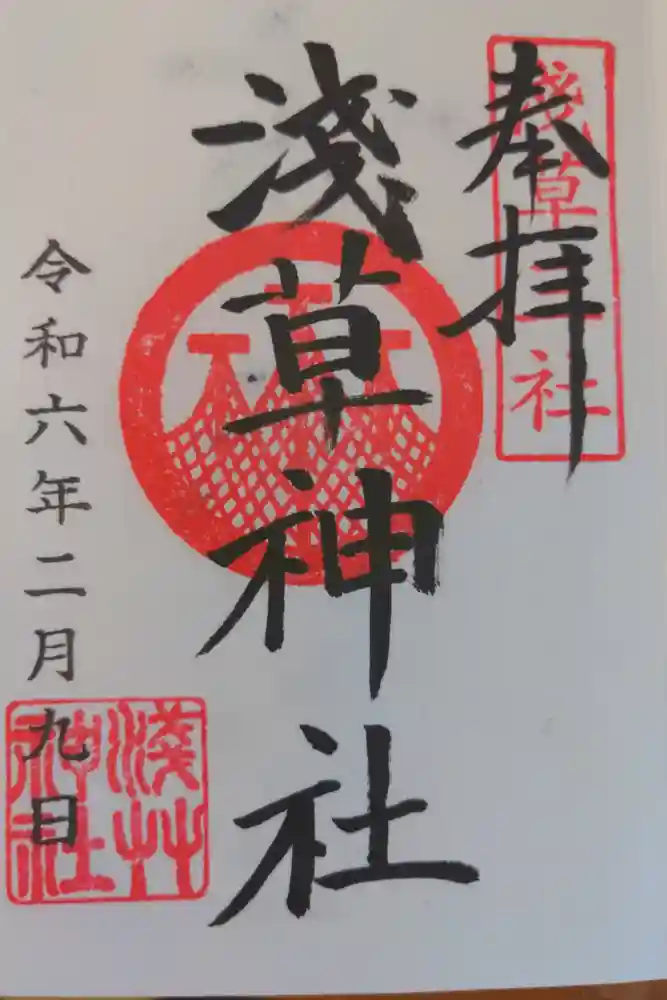 奉拝
淺草神社
淺草神社
令和六年二月九日
淺草神社